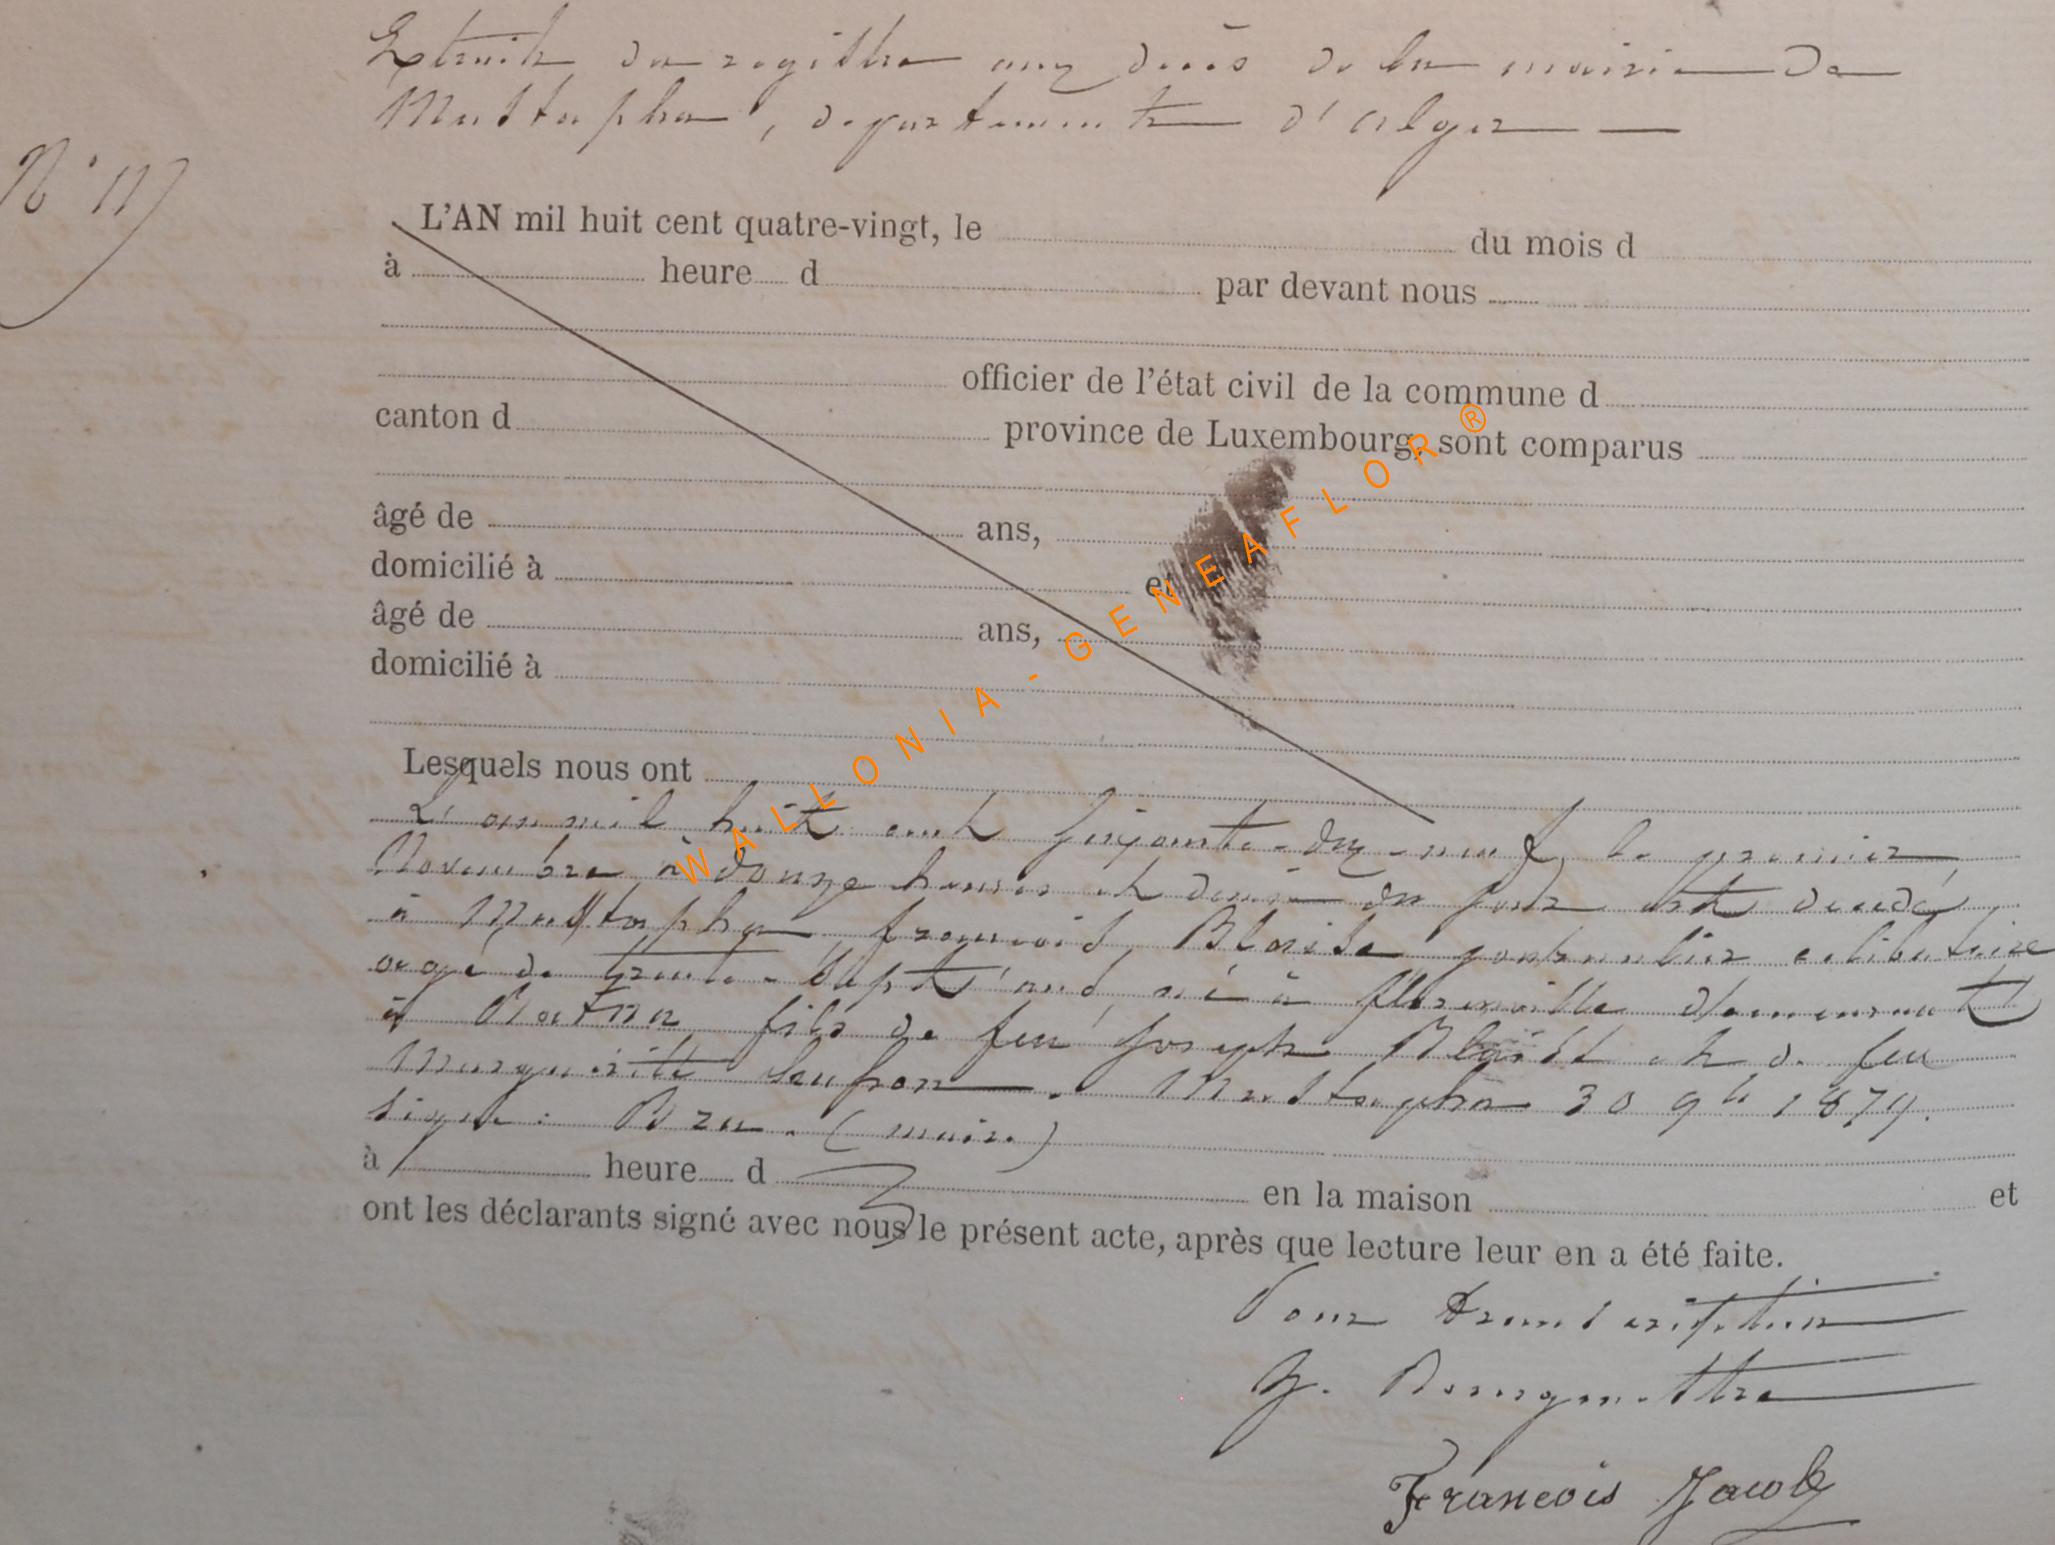 Extrait du registre aux décès de la mairie de
Mustapha, département d'Alger
N° 117
L'AN mil huit cent quatre-vingt, le du mois d
à heure d par devant nous
officier de l'état civil de la commune d
canton d province de Luxembourg, sont comparus
âgé de ans,
domicilié à et
âgé de ans,
domicilié à
Lesquels nous ont
L'an mil huit cent soixante-dix-neuf, le premier
Novembre à douze heures et demie du jour est décédé
à Mustapha, François, Blaise journalier célibataire
agé de trente-sept ans, né à Florenville demeurant
à fils de feu Joseph Blaise et de feu
Marguerite . Mustapha 30 9bre 1879.
signé: Bru. (maire)
à heure d en la maison et
ont les déclarants signé avec nous le présent acte, après que lecture leur en a été faite.
Pour transcription
Bourgmestre
François Jacob
WALLONIA-GENEAFLOR®